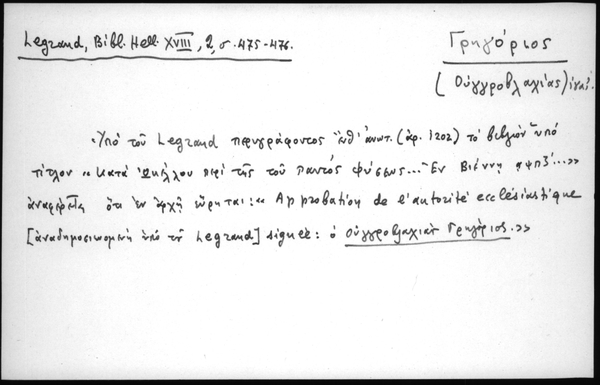 Legrand, Bibl. Hell. XVIII, 2, σ. 475-476.
Γρηγόριος
(Οὑγγροβλαχίας)
Ὑπὸ τοῦ Legrand περιγράφοντος ἔνθ' ἀνωτ. (ἀρ. 1202) τὸ βιβλίον ὑπὸ
τίτλον «κατὰ Ὠκέλλου περὶ τῆς τοῦ παντὸς φύσεως... Ἐν Βιέννῃ ͵αψπζ'...»
ἀναφέρεται ὅτι ἐν ἀρχῇ εὕρηται: «Approbation de l'autorité ecclésiastique
[ἀναδημοσιευομένη ὑπὸ τοῦ Legrand] signée: ὁ Οὑγγροβλαχίας Γρηγόριος.»